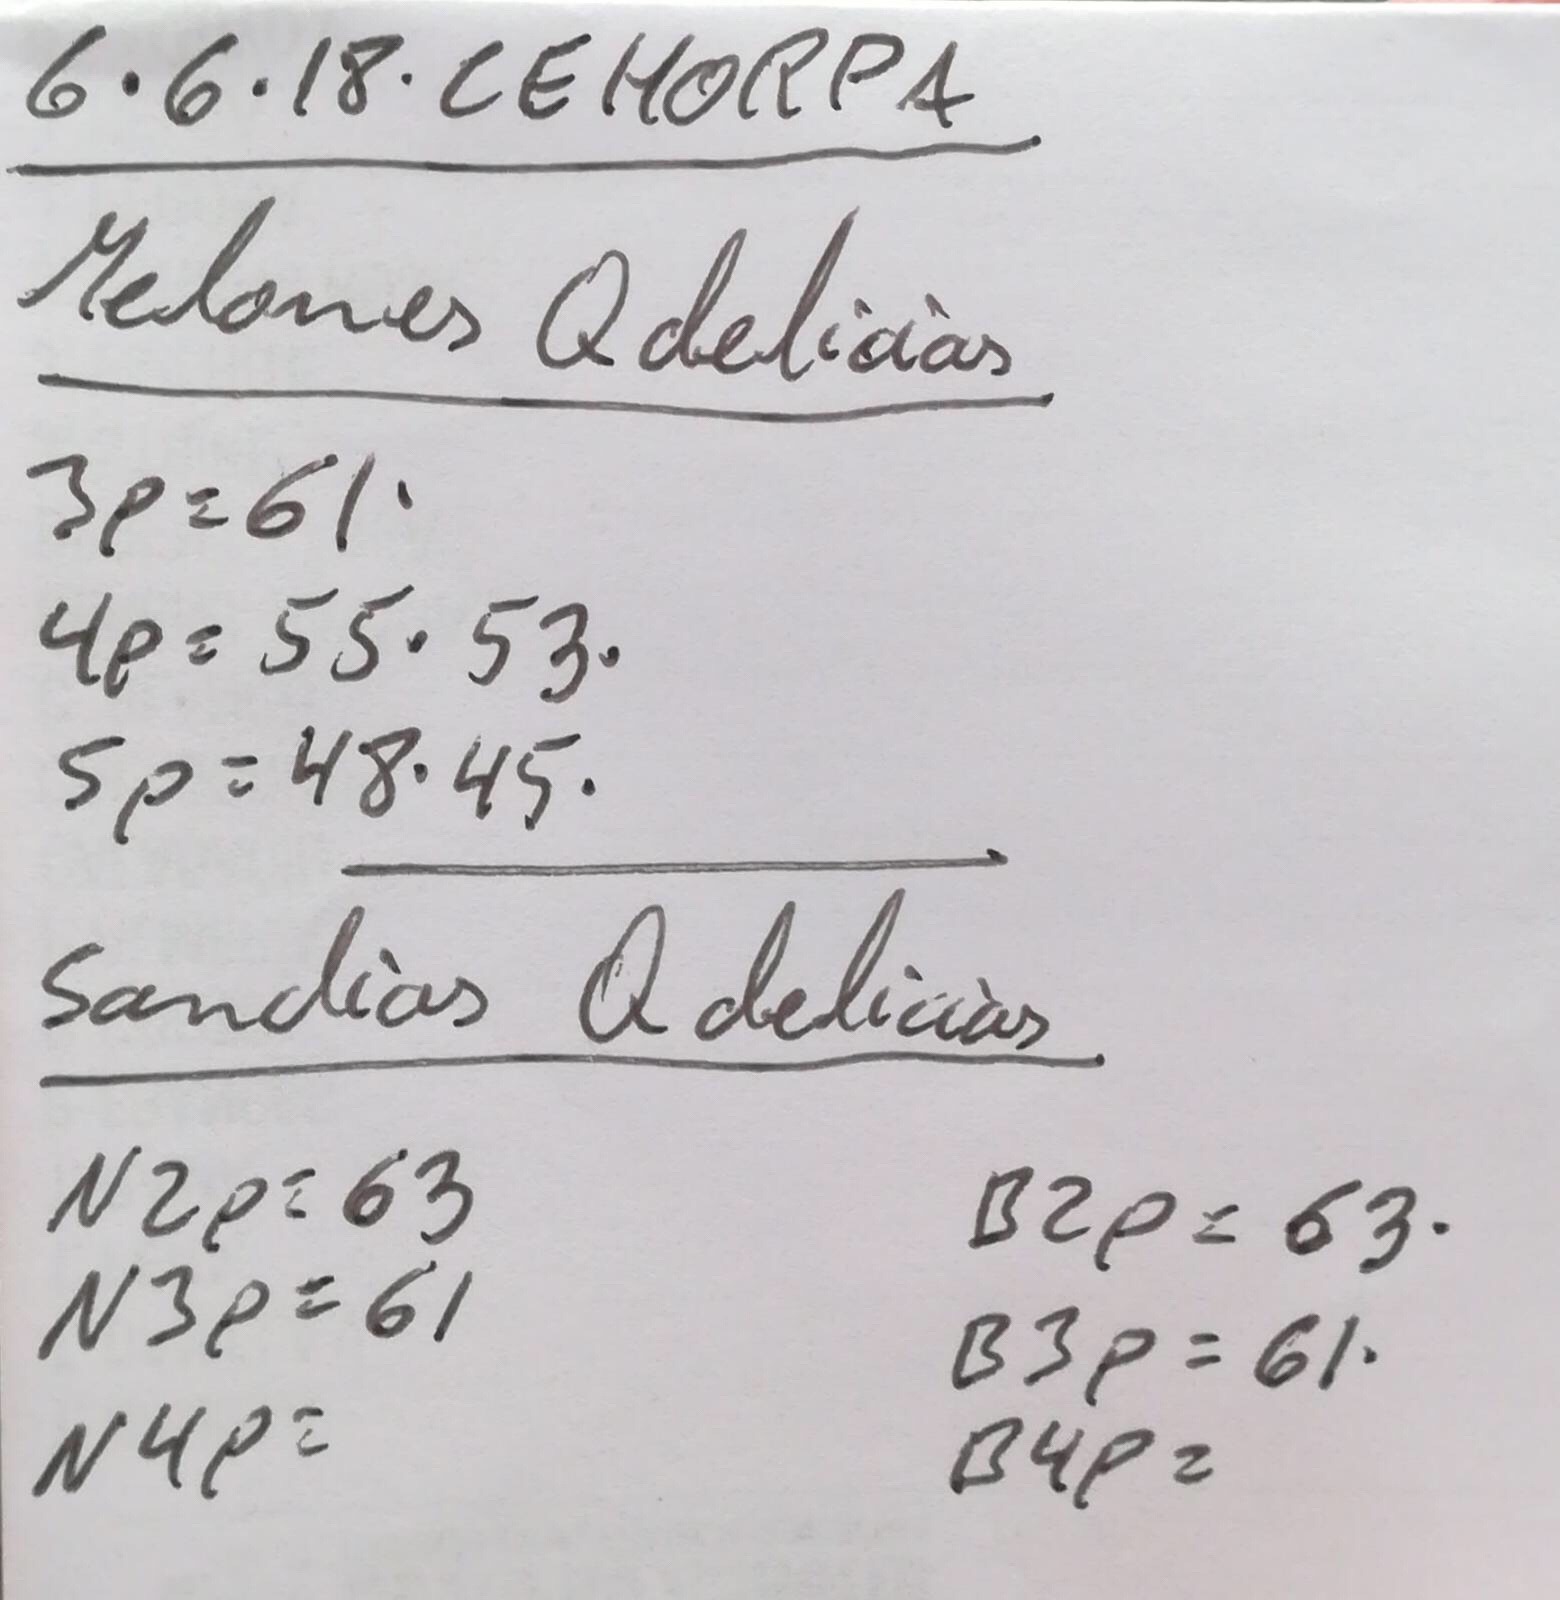 6.6.18. CEHORPA
Melones Qdelicias
3p=61.
4p=55.53.
5p=48.45.
Sandias Qdelicias
N2p=63
B2p=63.
N3p=61
B3p=61.
N4p=
B4p=